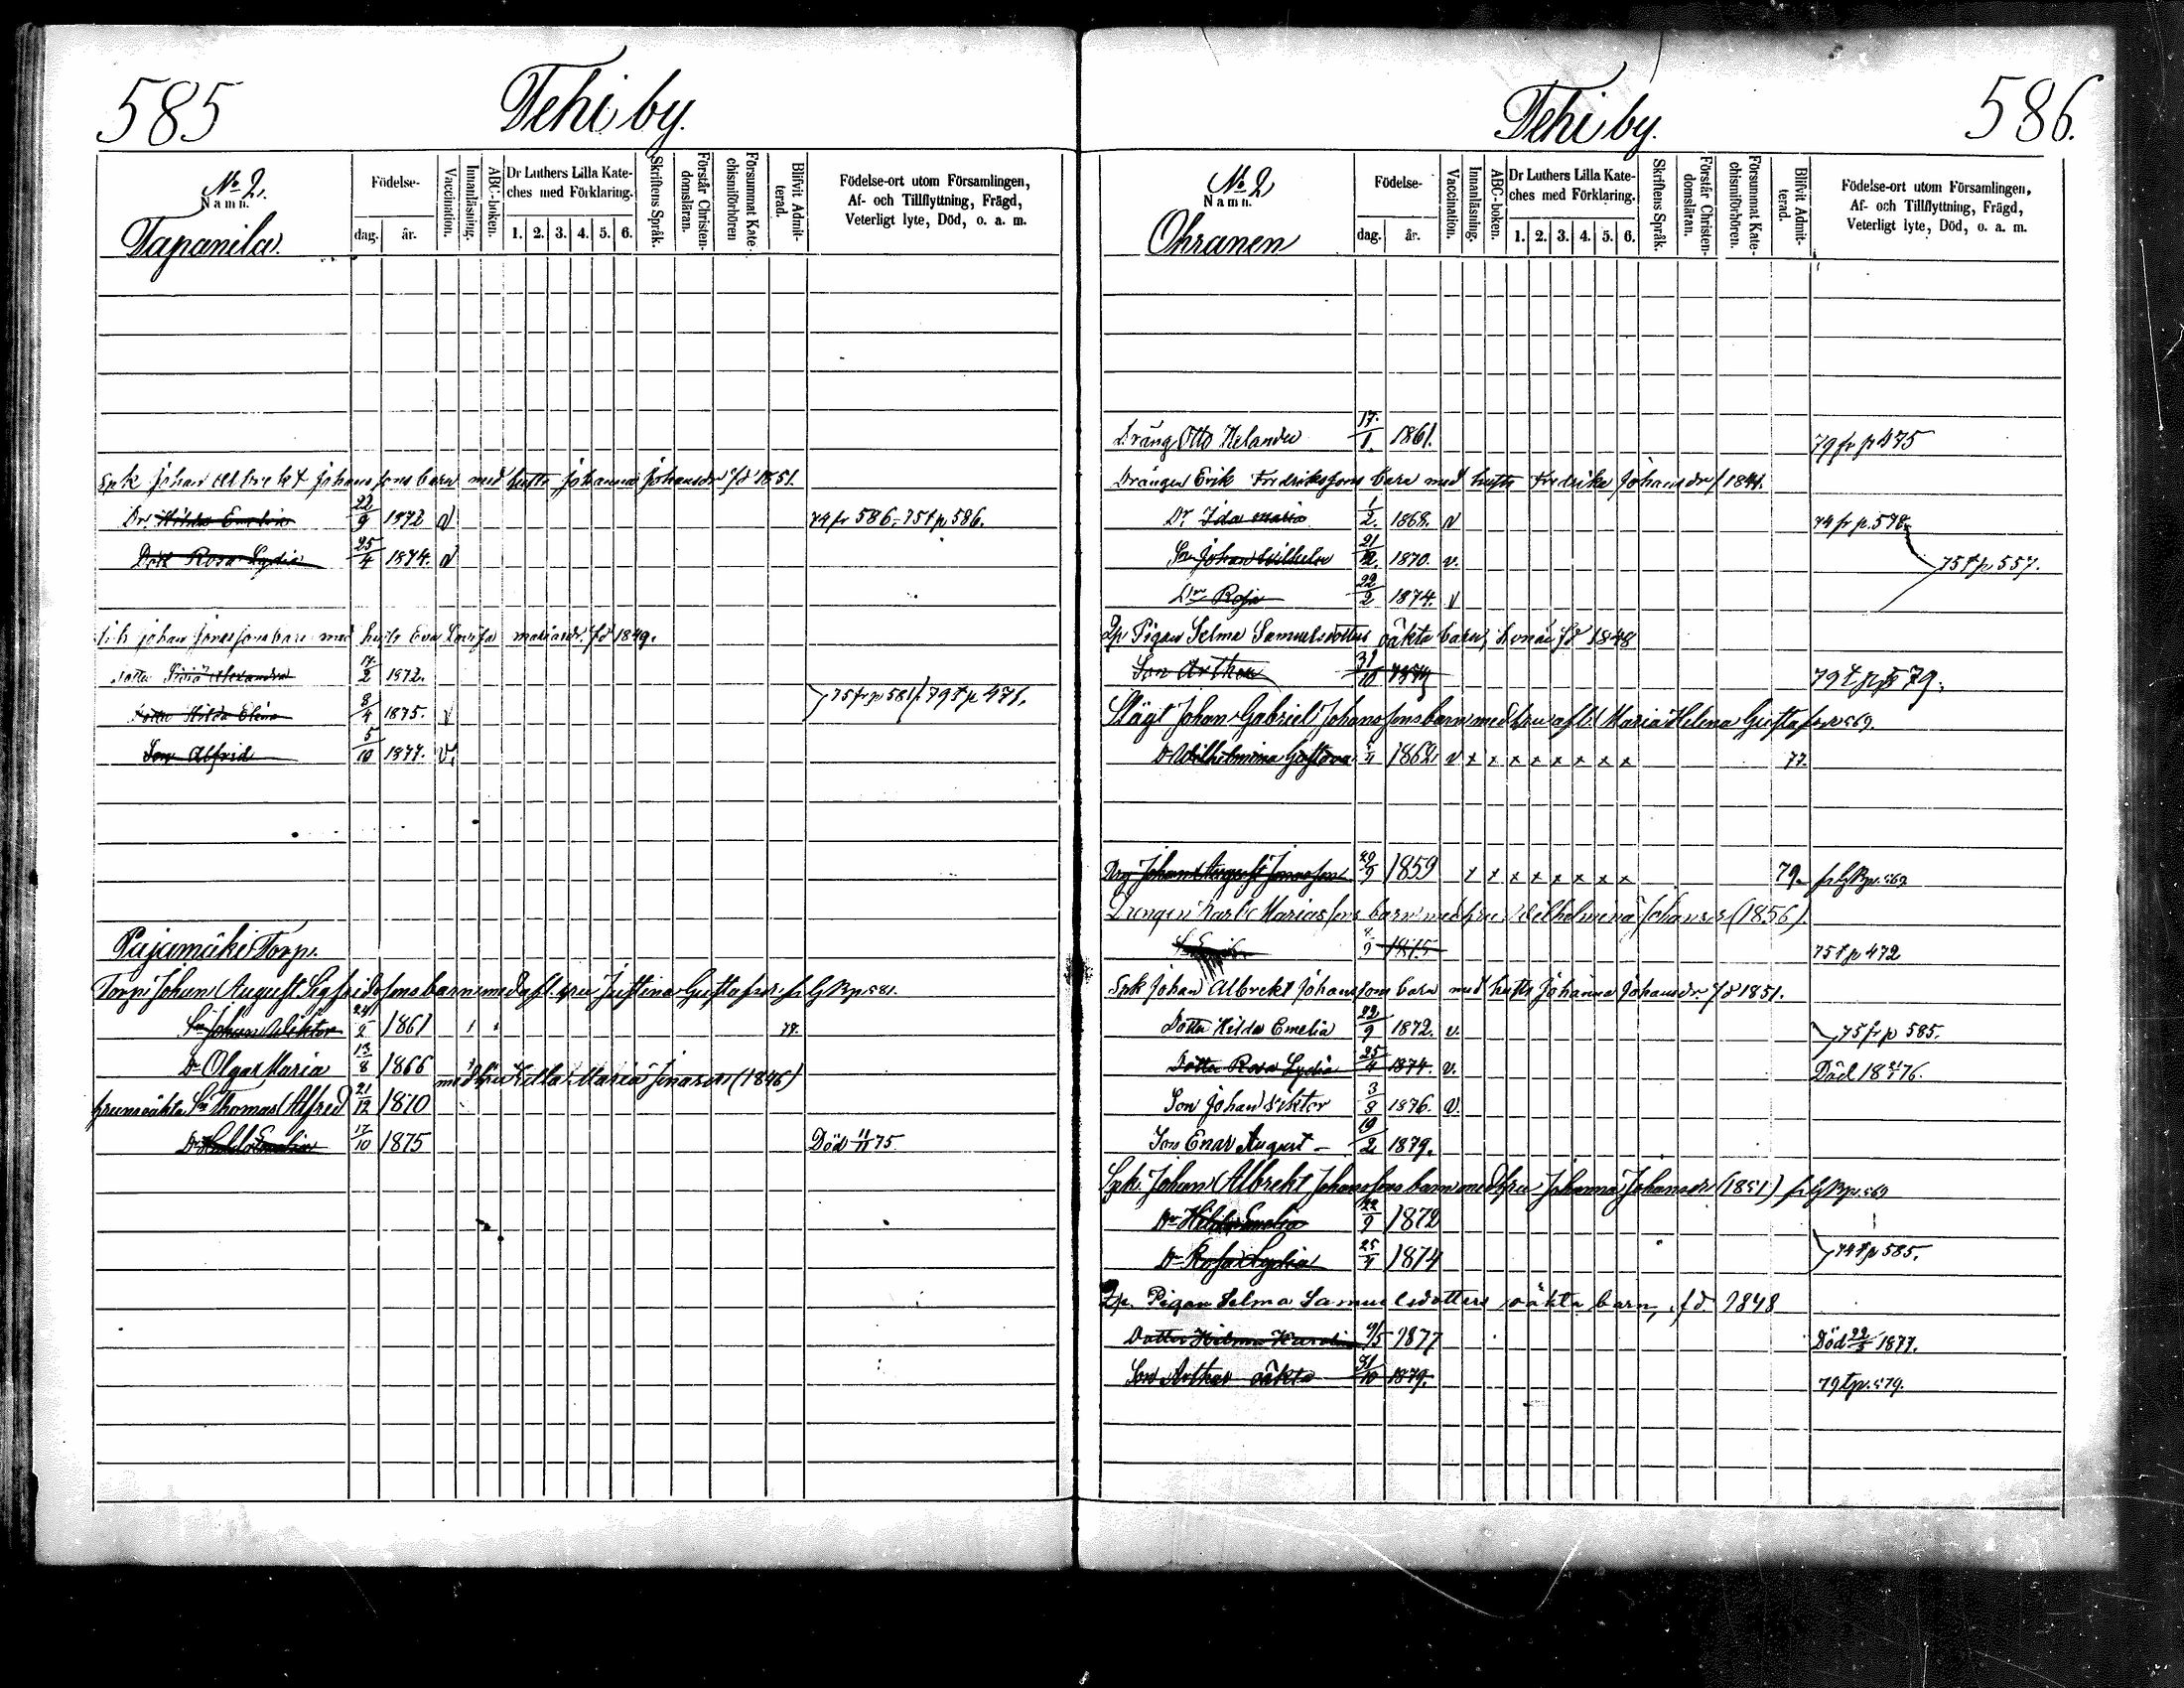 585
Tehi by.
No 2.
Namn.
Tapanila.
Födelse-
dag. år.
Vaccination.
Innanläsning.
ABC-boken.
Dr Luthers Lilla Kate-
ches med Förklaring.
1. 2. 3. 4. 5. 6.
Skriftens Språk.
Förstår Christen-
domsläran.
Försummat Kate-
chismiförhören
Blifvit Admit-
terad.
Födelse-ort utom Församlingen,
Af- och Tillflyttning, Frägd,
Veterligt lyte, Död, o. a. m.
Spk Johan Albrekt Johanssons barn med hustr Johanna Johansdr fd 1851.
Dr. Hilda Emelia 22/9 1872 v 74 fr 586.- 75 t p 586.
Dott Rosa Lydia 25/4 1874. v
Johan Jonassons barn med hustr Eva Lovisa mariasdr. fd 1849.
Dotter Alexandra 17/2 1872.
Dotter Hilda Elina 8/4 1875. v 75 fr p 581 79 t p 471.
Son Alfrid 5/10 1877. v.
Pajamäki Torp.
Torp. Johan August Segfridssons barn med afl. hru Justina Gustafsdr. fr LjB p. 581.
Sn Johan Wiktor 1861 78.
Dr Olga Maria 13/8 1866
med hru Maria Jonasdr (1846)
hruns oäkta Sn Thomas Alfred 21/12 1870
Dr Hulda Emelia 17/10 1875 Död 11/11 75.
586.
Tehi by.
No 2
Namn.
Ohranen
Födelse-
dag. år.
Vaccination.
Innanläsning.
ABC-boken.
Dr Luthers Lilla Kate-
ches med Förklaring.
1. 2. 3. 4. 5. 6.
Skriftens Språk.
Förstår Christen-
domsläran.
Försummat Kate-
chismiförhören.
Blifvit Admit-
terad.
Födelse-ort utom Församlingen,
Af- och Tillflyttning, Frägd,
Veterligt lyte, Död, o. a. m.
Dräng Otto Helander 17/1. 1861. 79 fr p 475
Drängen Erik Fredrikssons barn med hustr Fredrika Johansdr / 1841.
Dr. Ida Maria 1/2. 1868. v 74 fr p. 578.
Son Johan Wilhelm 21/12. 1870. v. 75 t p. 557.
Dr Rosa 22/2 1874. v
Pigan Selma Samuelsdotters oäkta barn, fd 1848
Son Arthur 31/10 79 t p 579.
Johan Gabriel Johanssons barn med hru afl. Maria Helena Gustafsdr p 569.
Dr Wilhelmina Gustava 1862. v x x x x x x x x 77.
Drg Johan August Jonasson 29/9 1859 x x x x x x x x 79. fr LjB p. 569
Drengen Karl Mariassons barn med hru Wilhelmina Johansdr (1856).
1875 75 t p 472
Spk Johan Albrekt Johanssons barn med hustr Johanna Johansdr. fd 1851.
Dotter Hilda Emelia 22/9 1872. v. 75 fr p 585.
Dotter Rosa Lydia 25/4 1874. v. Död 18 76.
Son Johan Viktor 3/8 1876. v.
Son Enar August - 19/2 1879.
Spk. Johan Albrekt Johanssons barn med hru Johanna Johansdr (1851) fr LjB p. 569
Dr Hilda Emelia 22/9 1872
Dr Rosa Lydia 25/4 1874 74 t p 585.
Pigan Selma Samuelsdotters oäkta barn, fd 1848
Dotter Hilma Karolina 9/5 1877 Död 22/5 1877.
Son Arthur oäkta 31/10 1879. 79 t p. 579.